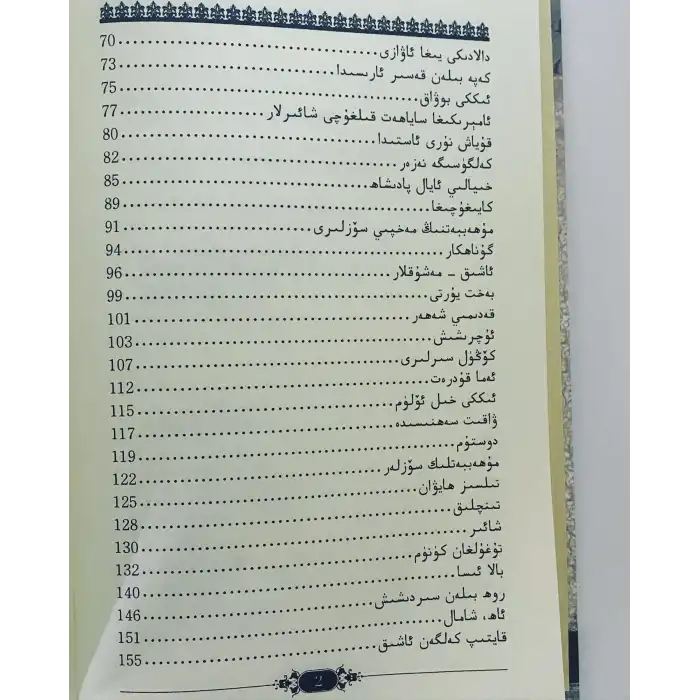 دالادىكى يىغا ئاۋازى ........ 70
كەپە بىلەن قەسىر ئارىسىدا ........ 73
ئىككى بوۋاق ........ 75
ئامېرىكىغا ساياھەت قىلغۇچى شائىرلار ........ 77
قۇياش نۇرى ئاستىدا ........ 80
كەلگۈسىگە نەزەر ........ 82
خىيالىي ئايال پادىشاھ ........ 85
كايىغۇچىغا ........ 89
مۇھەببەتنىڭ مەخپىي سۆزلىرى ........ 91
گۇناھكار ........ 94
ئاشىق - مەشۇقلار ........ 96
بەخت يۇرتى ........ 99
قەدىمىي شەھەر ........ 101
ئۇچرىشىش ........ 103
كۆڭۈل سىرلىرى ........ 107
ئەما قۇدرەت ........ 112
ئىككى خىل ئۆلۈم ........ 115
ۋاقىت سەھنىسىدە ........ 117
دوستۇم ........ 119
مۇھەببەتلىك سۆزلەر ........ 122
تىلسىز ھايۋان ........ 125
تىنچلىق ........ 128
شائىر ........ 130
تۇغۇلغان كۈنۈم ........ 132
بالا ئىسا ........ 140
روھ بىلەن سىردىشىش ........ 146
ئاھ، شامال ........ 151
قايتىپ كەلگەن ئاشىق ........ 155
2